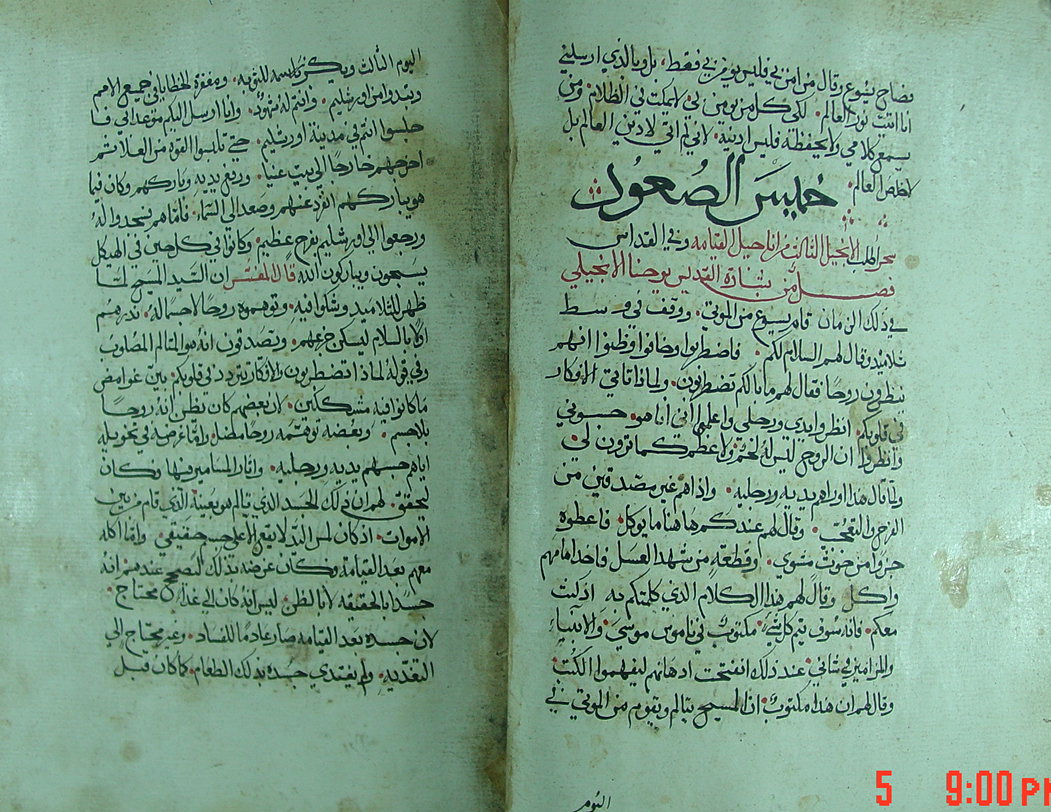 فصاح يسوع وقال من امن بي فليس يومن بي فقط، بل وبالذي ارسلني
انا اتيت نور العالم. لكي كل من يومن بي لا يمكث في الظلام ومن
يسمع كلامي ولا يحفظه فليس ادينه لاني لم اتي لادين العالم بل
لاخلص العالم.
خميس الصعود
سحر الملك الانجيل الثالث من اناجيل القيامه وفي القداس
فصل من بشارة القديس يوحنا الانجيلي
في ذلك الزمان قام يسوع من الموتي. ووقف في وسط
تلاميذه وقال لهم السلام لكم. فاضطربوا وخافوا وظنوا انهم
ينظرون روحا فقال لهم ما بالكم تضطربون. ولماذا تاتي الافكار
في قلوبكم انظروا يدي ورجلي واعلموا اني انا هو. حسوني
وانظروا ان الروح ليس له لحم ولا عظم كما ترون لي.
ولما قال هذا اوراهم يديه ورجليه. واذ هم غير مصدقين من
الفرح والتعجب. وقال لهم عندكم هاهنا ما يوكل. فاعطوه
جزوا من حوت مشوي. وقطعة من شهد العسل فاخد امامهم
واكل وقال لهم هذا الكلام الذي كلمتكم به اذ كنت
معكم. فانه سوف يتم كل شي مكتوب في ناموس موسي والانبياء
والمزامير في شاني. عند ذلك انفتحت ادهانهم ليفهموا الكتب.
وقال لهم ان هذا مكتوب. ان المسيح يتالم ويقوم من الموتي في
اليوم
اليوم الثالث ويكرز باسمه للتوبه. ومغفرة الخطايا في جميع الامم
ويبدوا من اورشليم. وانتم له شهود. وانا ارسل اليكم موعد ابي فا
جلسوا انتم في مدينة اورشليم. حتي تلبسوا القوه من العلا ثم
اخرجهم خارجا الي بيت عنيا. ورفع يديه وباركهم وكان فيما
هو يباركهم انفرد عنهم وصعد الي السماء. فاما هم سجدوا له
ورجعوا الي اورشليم بفرح عظيم. وكانوا في كل حين في الهيكل
يسبحون ويباركون الله قال المفسر ان السيد المسيح لما
ظهر للتلاميد وشكوا فيه. وتوهموه روحا لا جسم له.
اولا بالسلام ليسكن جزعهم. ويصدقون انه هو المتالم المصلوب
وفي قوله لماذا تضطربون والافكار تتردد في قلوبكم. بين غوامض
ما كانوا فيه متشككين. لان بعضهم كان يظن انه روحا
بلا جسم. وبعضه توهمه روحا مضلا. واما غرضه في تخويله
اياهم جسهم يديه ورجليه. واثار المسامير فيها وكان
ليحقق لهم ان ذلك الجسد الذي تالم هو بعينه الذي قام من بين
الاموات. اذ كان لمس اليد لا يقع الا علي جسم حقيقي. واما اكله
معهم بعد القيامة وكان غرضه بذلك ليصحح عندهم انه
جسدا بالحقيقه لا بالظن ليس انه كان الي غداء محتاج.
لان جسده بعد القيامه صار عادما للفساد. وغير محتاج الي
التغديه. ولم يغتدي جسده بذلك الطعام. كما كان قبل
5 9:00 PM